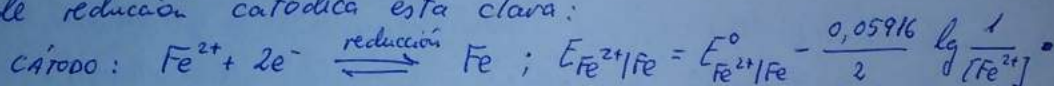 de reducción catódica está clara:
CÁTODO: Fe²⁺ + 2e⁻ ⇌ (reducción) Fe ; E_Fe²⁺/Fe = E⁰_Fe²⁺/Fe - 0,05916/2 lg 1/[Fe²⁺] •